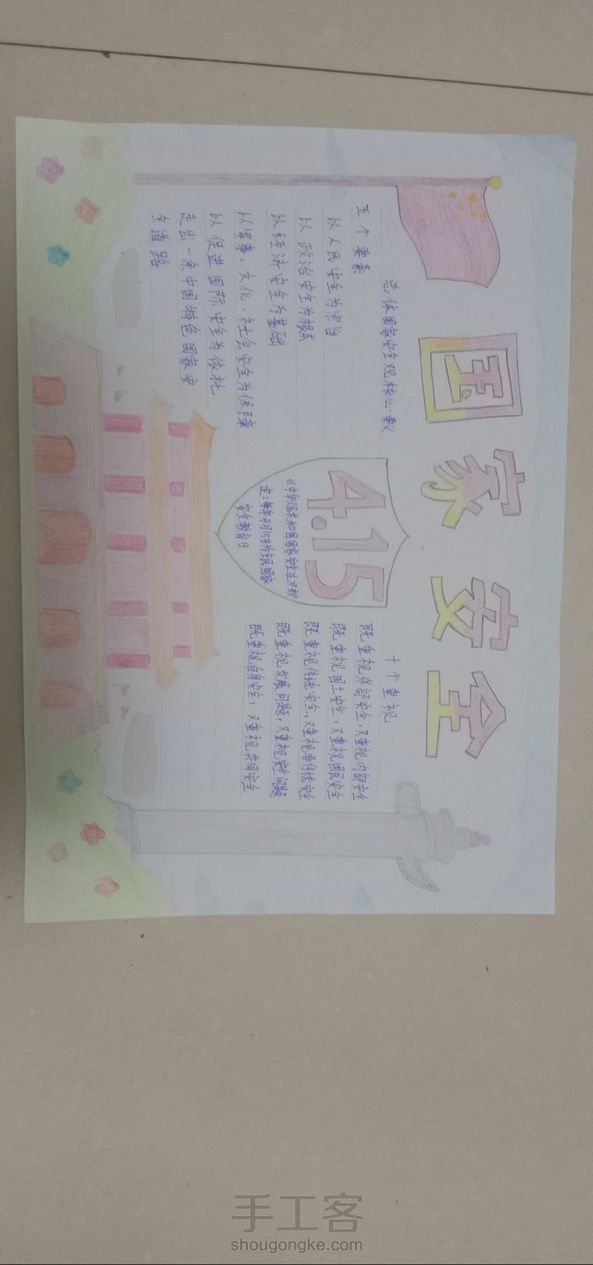 国家安全
总体国家安全观核心要义
五个要素
以人民安全为宗旨
以政治安全为根本
以经济安全为基础
以军事、文化、社会安全为保障
以促进国际安全为依托
走出一条中国特色国家安
全道路
4.15
《中华人民共和国国家安全法》规
定:每年4月15日为全民国家
安全教育日
十个重视
既重视外部安全,又重视内部安全
既重视国土安全,又重视国民安全
既重视传统安全,又重视非传统安全
既重视发展问题,又重视安全问题
既重视自身安全,又重视共同安全
手工客
shougongke.com